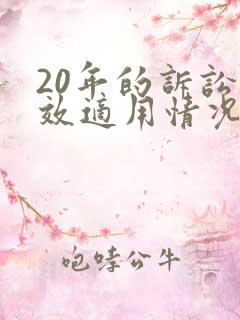 20年的訴訟
效適用情況
咆哮公牛